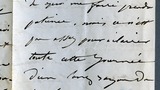 que me faire prendre
patience, mais ce n'est
pas assez pour éclairer
toute cette journée
d'un long rayon de